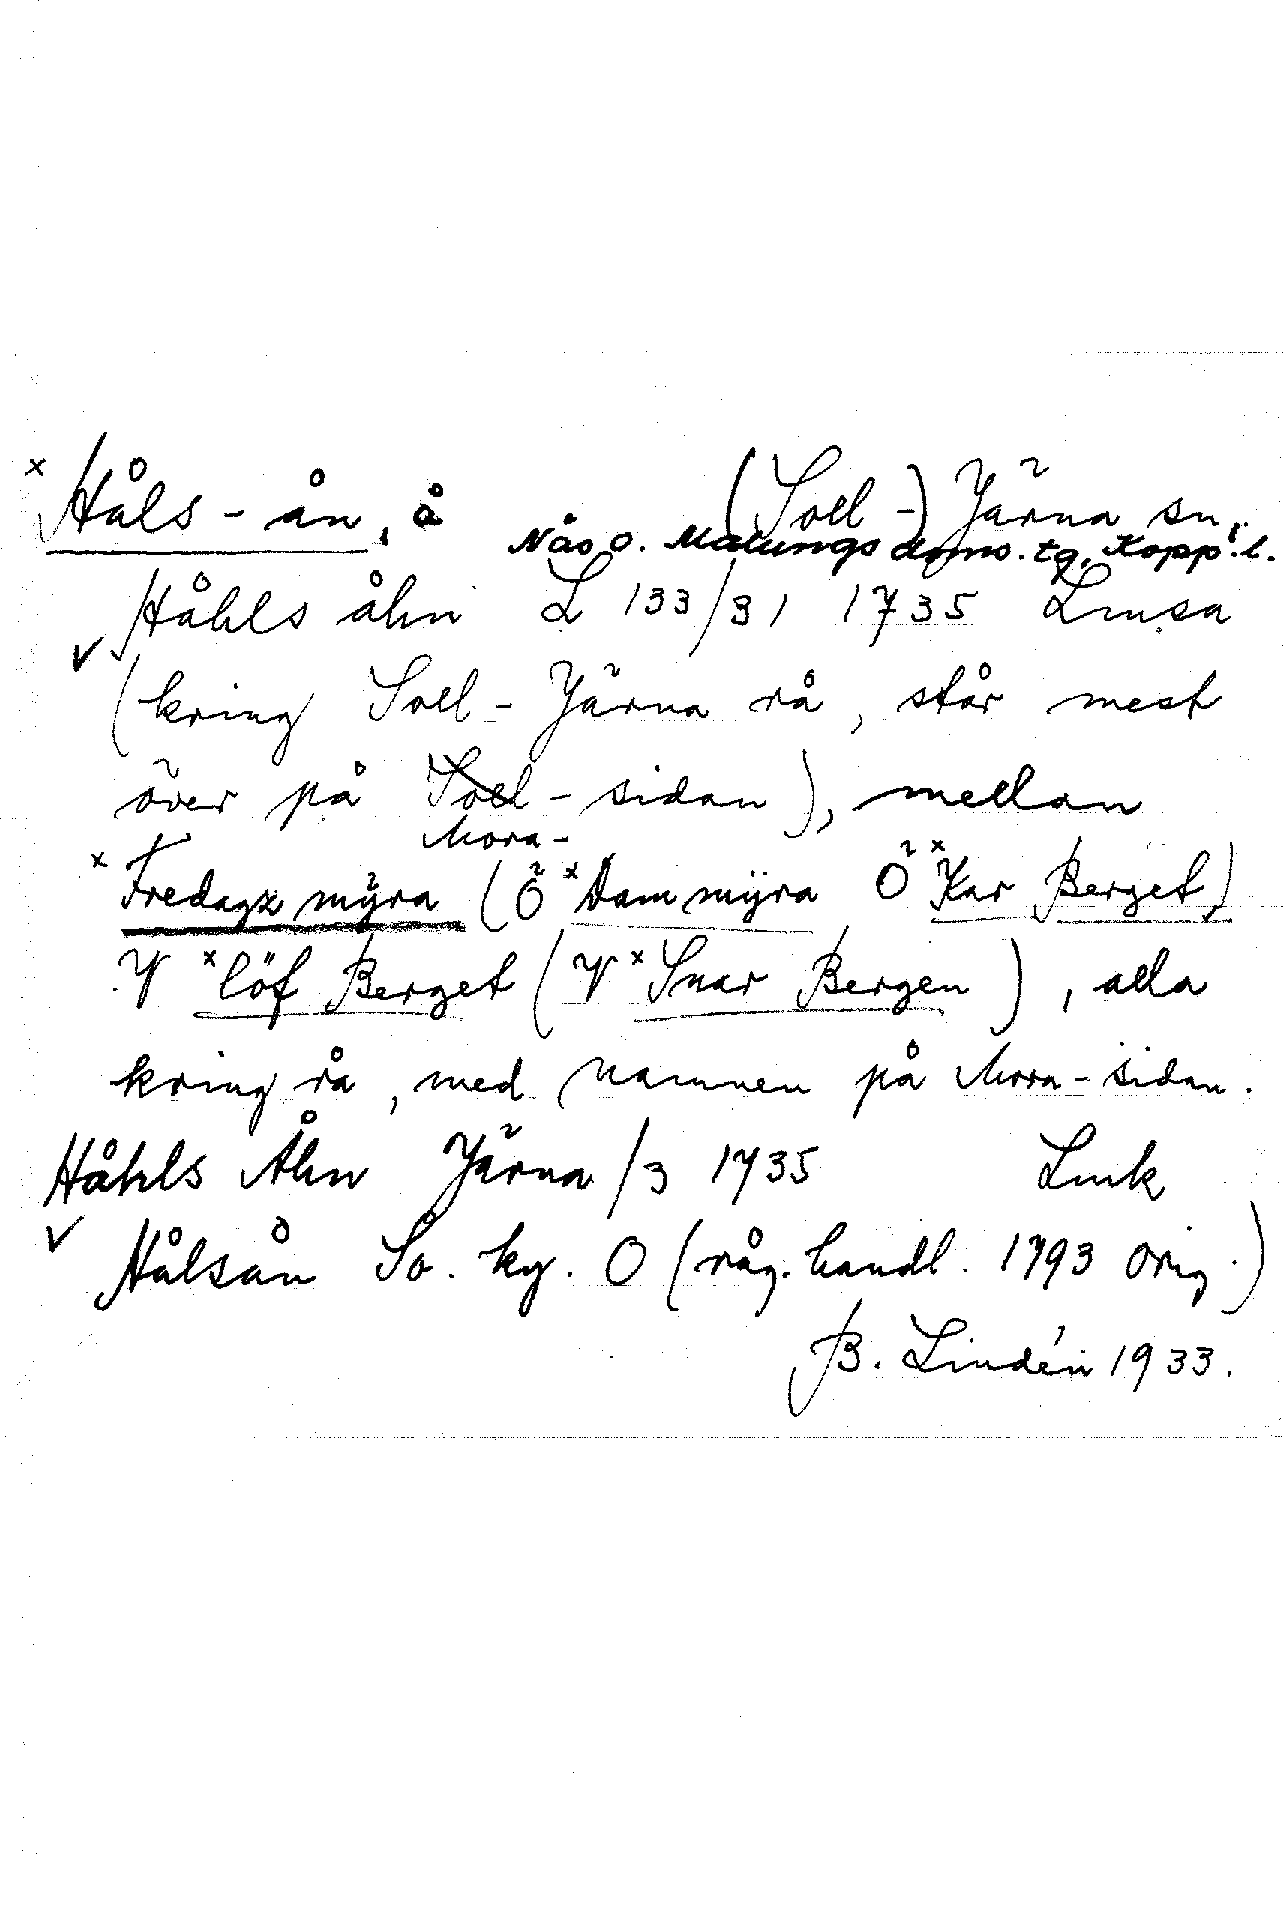 x Håls-ån, å (Soll-) Järna sn,
Nås o. Malungs doms. tg, Kopp. l.
Håhls åhn L 133/31 1735 Lmsa
✓ (kring Soll-Järna rå, står mest
över på Soll-sidan), mellan
Mora-
x Fredagz mÿra (Ö x Dam mÿra Ö x Kar Berget)
V x löf Berget (V x Snar Bergen), alla
kring rå, med namnen på Mora-sidan.
Håhls Åhn Järna/3 1735 Lmk
✓ Hålsån So. ky. O (råg. handl. 1793 orig.)
B. Lindén 1933.